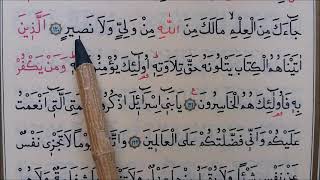 جَآءَكَ مِنَ الْعِلْمِ مَالَكَ مِنَ اللّٰهِ مِنْ وَلِيٍّ وَلَا نَصِيرٍ ﴿١٢٠﴾ اَلَّذِينَ
اٰتَيْنَاهُمُ الْكِتَابَ يَتْلُونَهُ حَقَّ تِلَاوَتِهِ اُولٰٓئِكَ يُؤْمِنُونَ وَمَنْ يَكْفُرْ
بِهِ فَاُولٰٓئِكَ هُمُ الْخَاسِرُونَ ﴿١٢١﴾ يَابَنِٓي اِسْرَآئِلَ اذْكُرُوا نِعْمَتِيَ الَّتِٓي اَنْعَمْتُ
عَلَيْكُمْ وَاَنِّي فَضَّلْتُكُمْ عَلَى الْعَالَمِينَ ﴿١٢٢﴾ وَلَا تَجْزِي نَفْسٌ
عَنْ نَفْسٍ شَيْئًا وَلَا